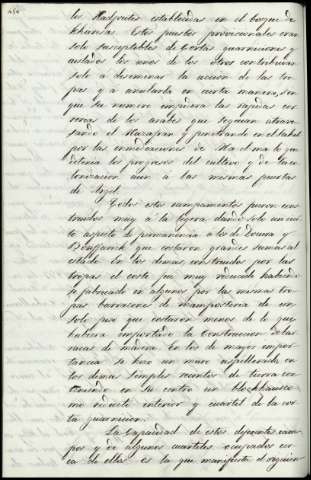 los Hadjoutes establecidos en el bosque de
Khareza. Estos puestos provisionales eran
solo susceptibles de cortas guarniciones y
aislados los unos de los otros contribuian
solo a diseminar la accion de las tro-
pas y a anularla en cierta manera, sin
que su numero impidiera las rapidas cor-
rerias de los arabes que seguian atrave-
sando el Mazafran y penetrando en el Sahel
por las inmediaciones de Maelma lo que
detenia los progresos del cultivo y de la ci-
vilizacion aun á las mismas puertas
de Argel.
Todos estos campamentos fueron cons-
truidos muy a la ligera dando solo un cier-
to aspecto de permanencia a los de Douera y
Bouffarick que costaron grandes sumas al
estado. En los demas construidos por las
tropas el coste fue muy reducido habiendo-
se fabricado en algunos por las mismas tro-
pas barracones de mamposteria de un
solo piso que costaron menos de lo que
hubiera importado la construccion de bar-
racas de madera. En los de mayor impor-
tancia se hizo un muro aspillerado, en
los demas simples recintos de tierra con-
teniendo en su centro un blockhausse
como reducto interior y cuartel de la cor-
ta guarnicion.
La capacidad de estos diferentes cam-
pos y de algunos cuarteles ocupados cer-
ca de ellos es la que manifiesta el siguien-